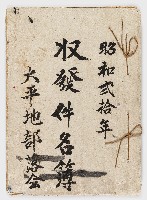 昭和弐拾年
収發件名簿
大平地部落会